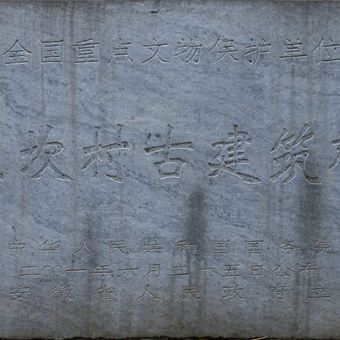 全国重点文物保护单位
坎村古建筑
中华人民共和国国务院
二〇〇一年六月二十五日公布
安徽省人民政府立